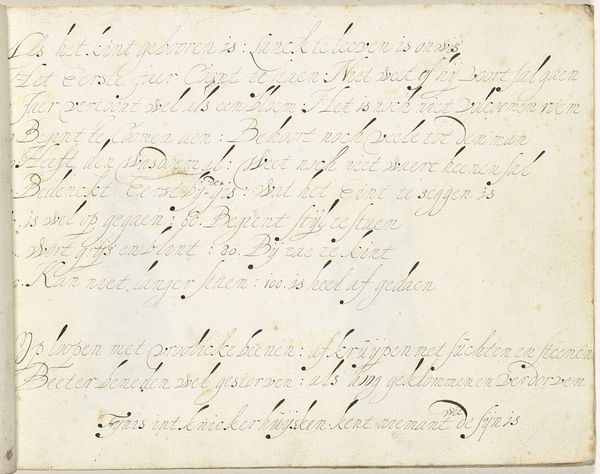 Als het kint gebooren is : Lanck te leeven is onwis
Het Eerst Jaer : Niet weet of hij voort sal gaen
Jaer vertoont wel als een bloem : Het is noch niet volcomen roem
Begint te Coomen aen : Behoort noch veele tot den man
Heeft den : Weet noch niet waert heenen sal
Bedenckt Eerst : Wat het Eint te seggen is
is wel op gegaen : 60. Begient stijl te staen
Wort grijs en blint : 80. Bij nae te kint
Kan niet langer staen : 100. is heel af gedaen
Op loopen met vroolicke beenen : af kruijpen met suchten en steenen
Beeter beneden wel gestorven : als hoog geklommen en verdorven
Tijnis int knickerhuijsken kent niemant wie de sijn is